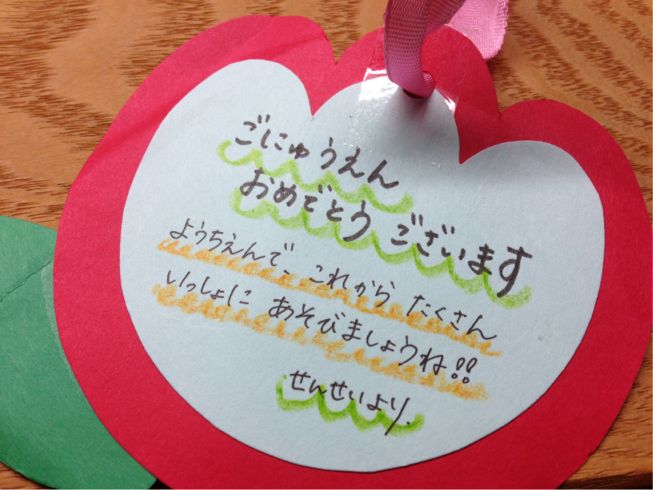 ごにゅうえん
おめでとう ございます
ようちえんで、これから たくさん
いっしょに あそびましょうね!!
せんせいより.